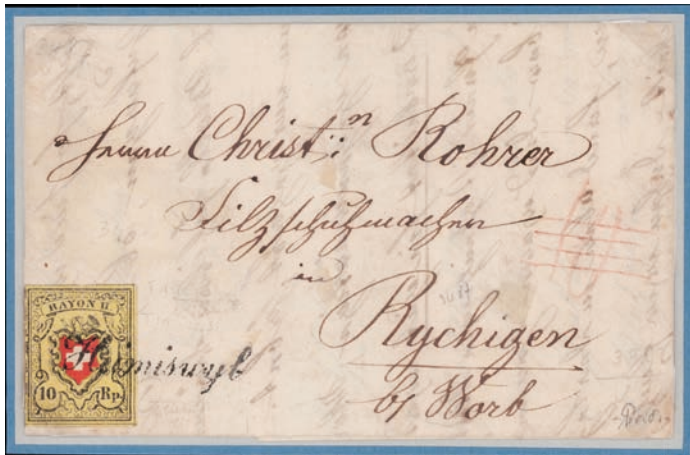 Herrn Christ:n Rohrer
Filzschuhmacher
in
Rychigen
by Worb
RAYON II
10 Rp.
Heimiswyl